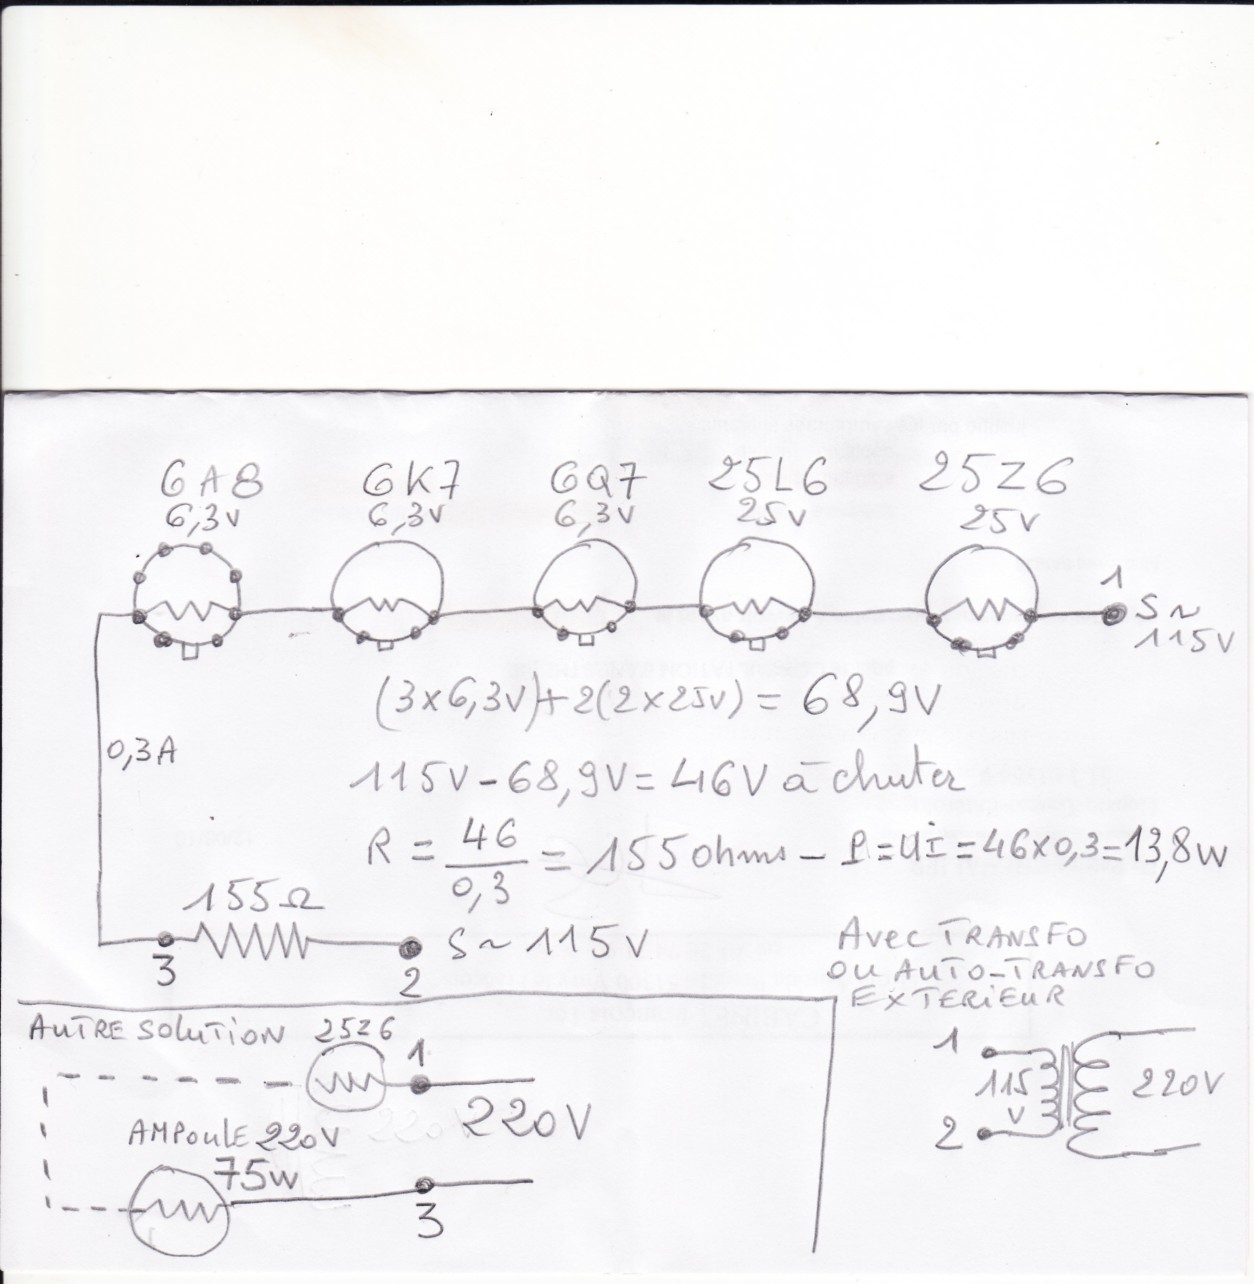 6A8 6K7 6Q7 25L6 25Z6
6,3v 6,3v 6,3v 25v 25v
1
S~
115V
(3x6,3v)+2(2x25v) = 68,9V
0,3A
115V-68,9V=46V à chuter
R = 46/0,3 = 155 ohms - P=UI=46x0,3=13,8w
155Ω
3
2
S~ 115V
AVEC TRANSFO
OU AUTO-TRANSFO
EXTERIEUR
AUTRE SOLUTION 25Z6
1
220V
AMPOULE 220V
75W
3
1
115
V
2
220V